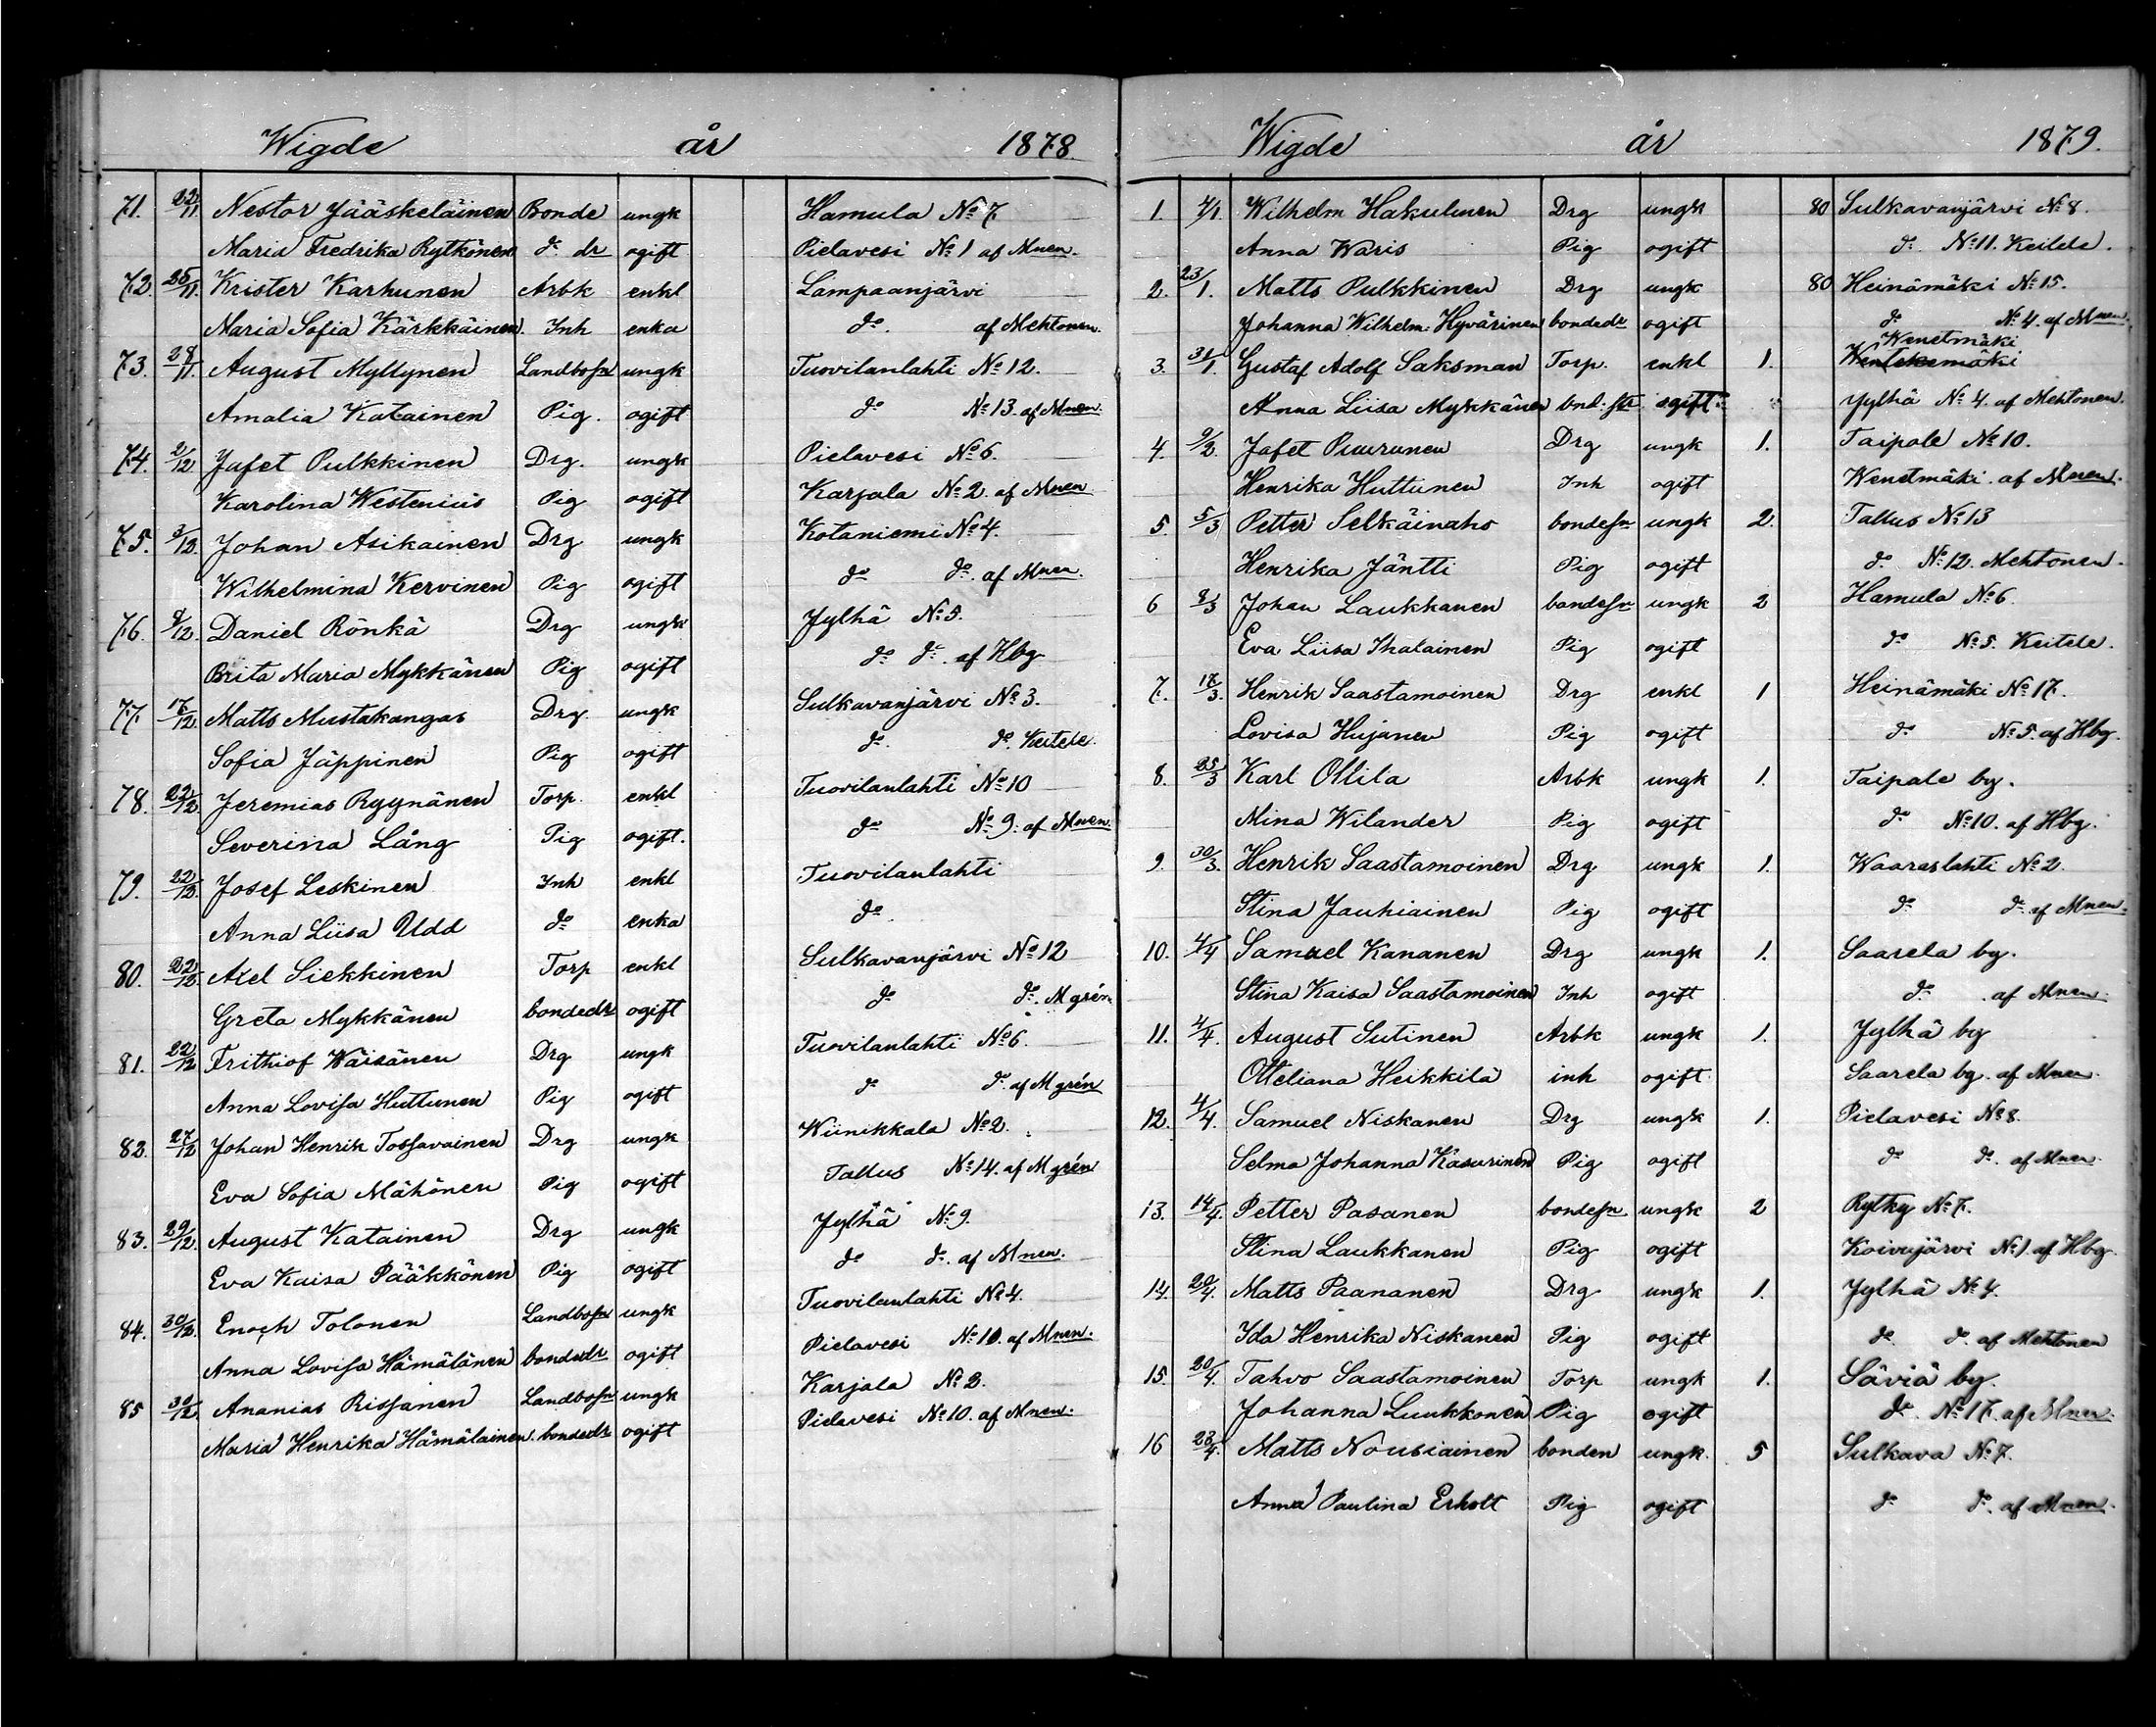 Wigde år 1878
71. 22/11 Nestor Jääskeläinen Bonde ungk Hamula No 7
Maria Fredrika Rytkönen do dr ogift Pielavesi No 1 af Mnen.
72. 25/11. Krister Karhunen Arbk enkl Lampaanjärvi
Maria Sofia Kärkkäinen Inh enka do. af Mehtonen.
73. 28/11. August Myllynen Landbosn ungk Tuovilanlahti No 12.
Amalia Katainen Pig. ogift do No 13. af Mnen.
74. 2/12 Jafet Pulkkinen Drg. ungk Pielavesi No 6.
Karolina Westenius Pig ogift Karjala No 2. af Mnen
75. 3/12. Johan Asikainen Drg ungk Kotaniemi No 4.
Wilhelmina Kervinen Pig ogift do do. af Mnen.
76. /12. Daniel Rönkä Drg ungk Jylhä No 5.
Brita Maria Mykkänen Pig ogift do do. af Hbg
77. 17/12. Matts Mustakangas Drg. ungk Sulkavanjärvi No 3.
Sofia Jäppinen Pig ogift do. do. Keitele.
78. 22/12 Jeremias Ryynänen Torp. enkl Tuovilanlahti No 10
Severina Lång Pig ogift. do No 9. af Mnen.
79. 22/12. Josef Leskinen Inh enkl Tuovilanlahti
Anna Liisa Udd do enka do.
80. 22/12. Axel Siekkinen Torp enkl Sulkavanjärvi No 12
Greta Mykkänen bondedr ogift do do. Mgrén
81. 22/12 Frithiof Wäisänen Drg ungk Tuovilanlahti No 6.
Anna Lovisa Huttunen Pig ogift do do. af Mgrén
82. 27/12 Johan Henrik Tossavainen Drg ungk Wiinikkala No 2.
Eva Sofia Mähönen Pig ogift Tallus No 14. af Mgrén
83. 29/12. August Katainen Drg ungk Jylhä No 9.
Eva Kaisa Pääkkönen Pig ogift do do. af Mnen.
84. 30/12. Enoch Tolonen Landbosn ungk Tuovilanlahti No 4.
Anna Lovisa Hämäläinen bondedr ogift Pielavesi No 10. af Mnen.
85 30/12 Ananias Rissanen Landbosn ungk Karjala No 2.
Maria Henrika Hämäläinen. bondedr ogift Pielavesi No 10. af Mnen.
Wigde år 1879.
1. 7/1. Wilhelm Hakulinen Drg ungk 80 Sulkavanjärvi No 8.
Anna Waris Pig ogift do. No 11. Keitele.
2. 23/1. Matts Pulkkinen Drg ungk 80 Heinämäki No 15.
Johanna Wilhelm: Hyvärinen bondedr ogift do No 4. af Mnen.
Wenetmäki
3. 31/1. Gustaf Adolf Saksman Torp. enkl 1.
Anna Liisa Mykkänen ogift Jylhä No 4. af Mehtonen.
4. 9/2. Jafet Puurunen Drg ungk 1. Taipale No 10.
Henrika Huttunen Inh ogift Wenetmäki. af Mnen.
5. 5/3 Petter Selkäinaho bondesn ungk 2. Tallus No 13
Henrika Jäntti Pig ogift do. No 12. Mehtonen.
6 8/3 Johan Laukkanen bondesn ungk 2 Hamula No 6.
Eva Liisa Ihalainen Pig ogift do No 5. Keitele.
7. 17/3. Henrik Saastamoinen Drg enkl 1 Heinämäki No 17.
Lovisa Hujanen Pig ogift do No 5. af Hbg.
8. 25/3 Karl Ollila Arbk ungk 1. Taipale by.
Mina Wilander Pig ogift do No 10. af Hbg.
9. 30/3. Henrik Saastamoinen Drg ungk 1. Waaraslahti No 2.
Stina Jauhiainen Pig ogift do do af Mnen.
10. 4/4 Samuel Kananen Drg ungk 1. Saarela by.
Stina Kaisa Saastamoinen Inh ogift do. af Mnen.
11. 4/4. August Sutinen Arbk ungk 1. Jylhä by
Otteliana Heikkilä inh ogift. Saarela by. af Mnen.
12. 4/4. Samuel Niskanen Drg ungk 1. Pielavesi No 8.
Selma Johanna Kasurinen Pig ogift do do. af Mnen.
13. 14/4. Petter Pasanen bondesn ungk 2 Rytky No 7.
Stina Laukkanen Pig ogift Koivujärvi No 1. af Hbg.
14. 20/4. Matts Paananen Drg ungk 1. Jylhä No 4.
Ida Henrika Niskanen Pig ogift do do. af Mehtonen
15. 20/4. Tahvo Saastamoinen Torp ungk 1. Säviä by.
Johanna Luukkonen Pig ogift do. No 17. af Mnen.
16 23/4. Matts Nousiainen bonden ungk. 5 Sulkava No 7.
Anna Paulina Erholt Pig ogift do do. af Mnen.